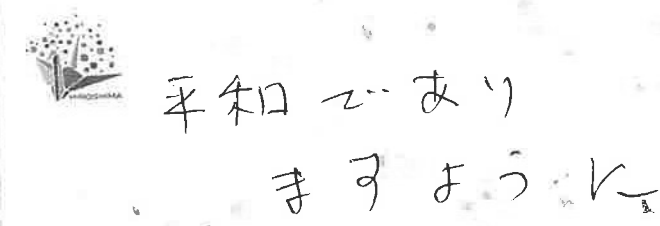 HIROSHIMA
平和であり
ますように